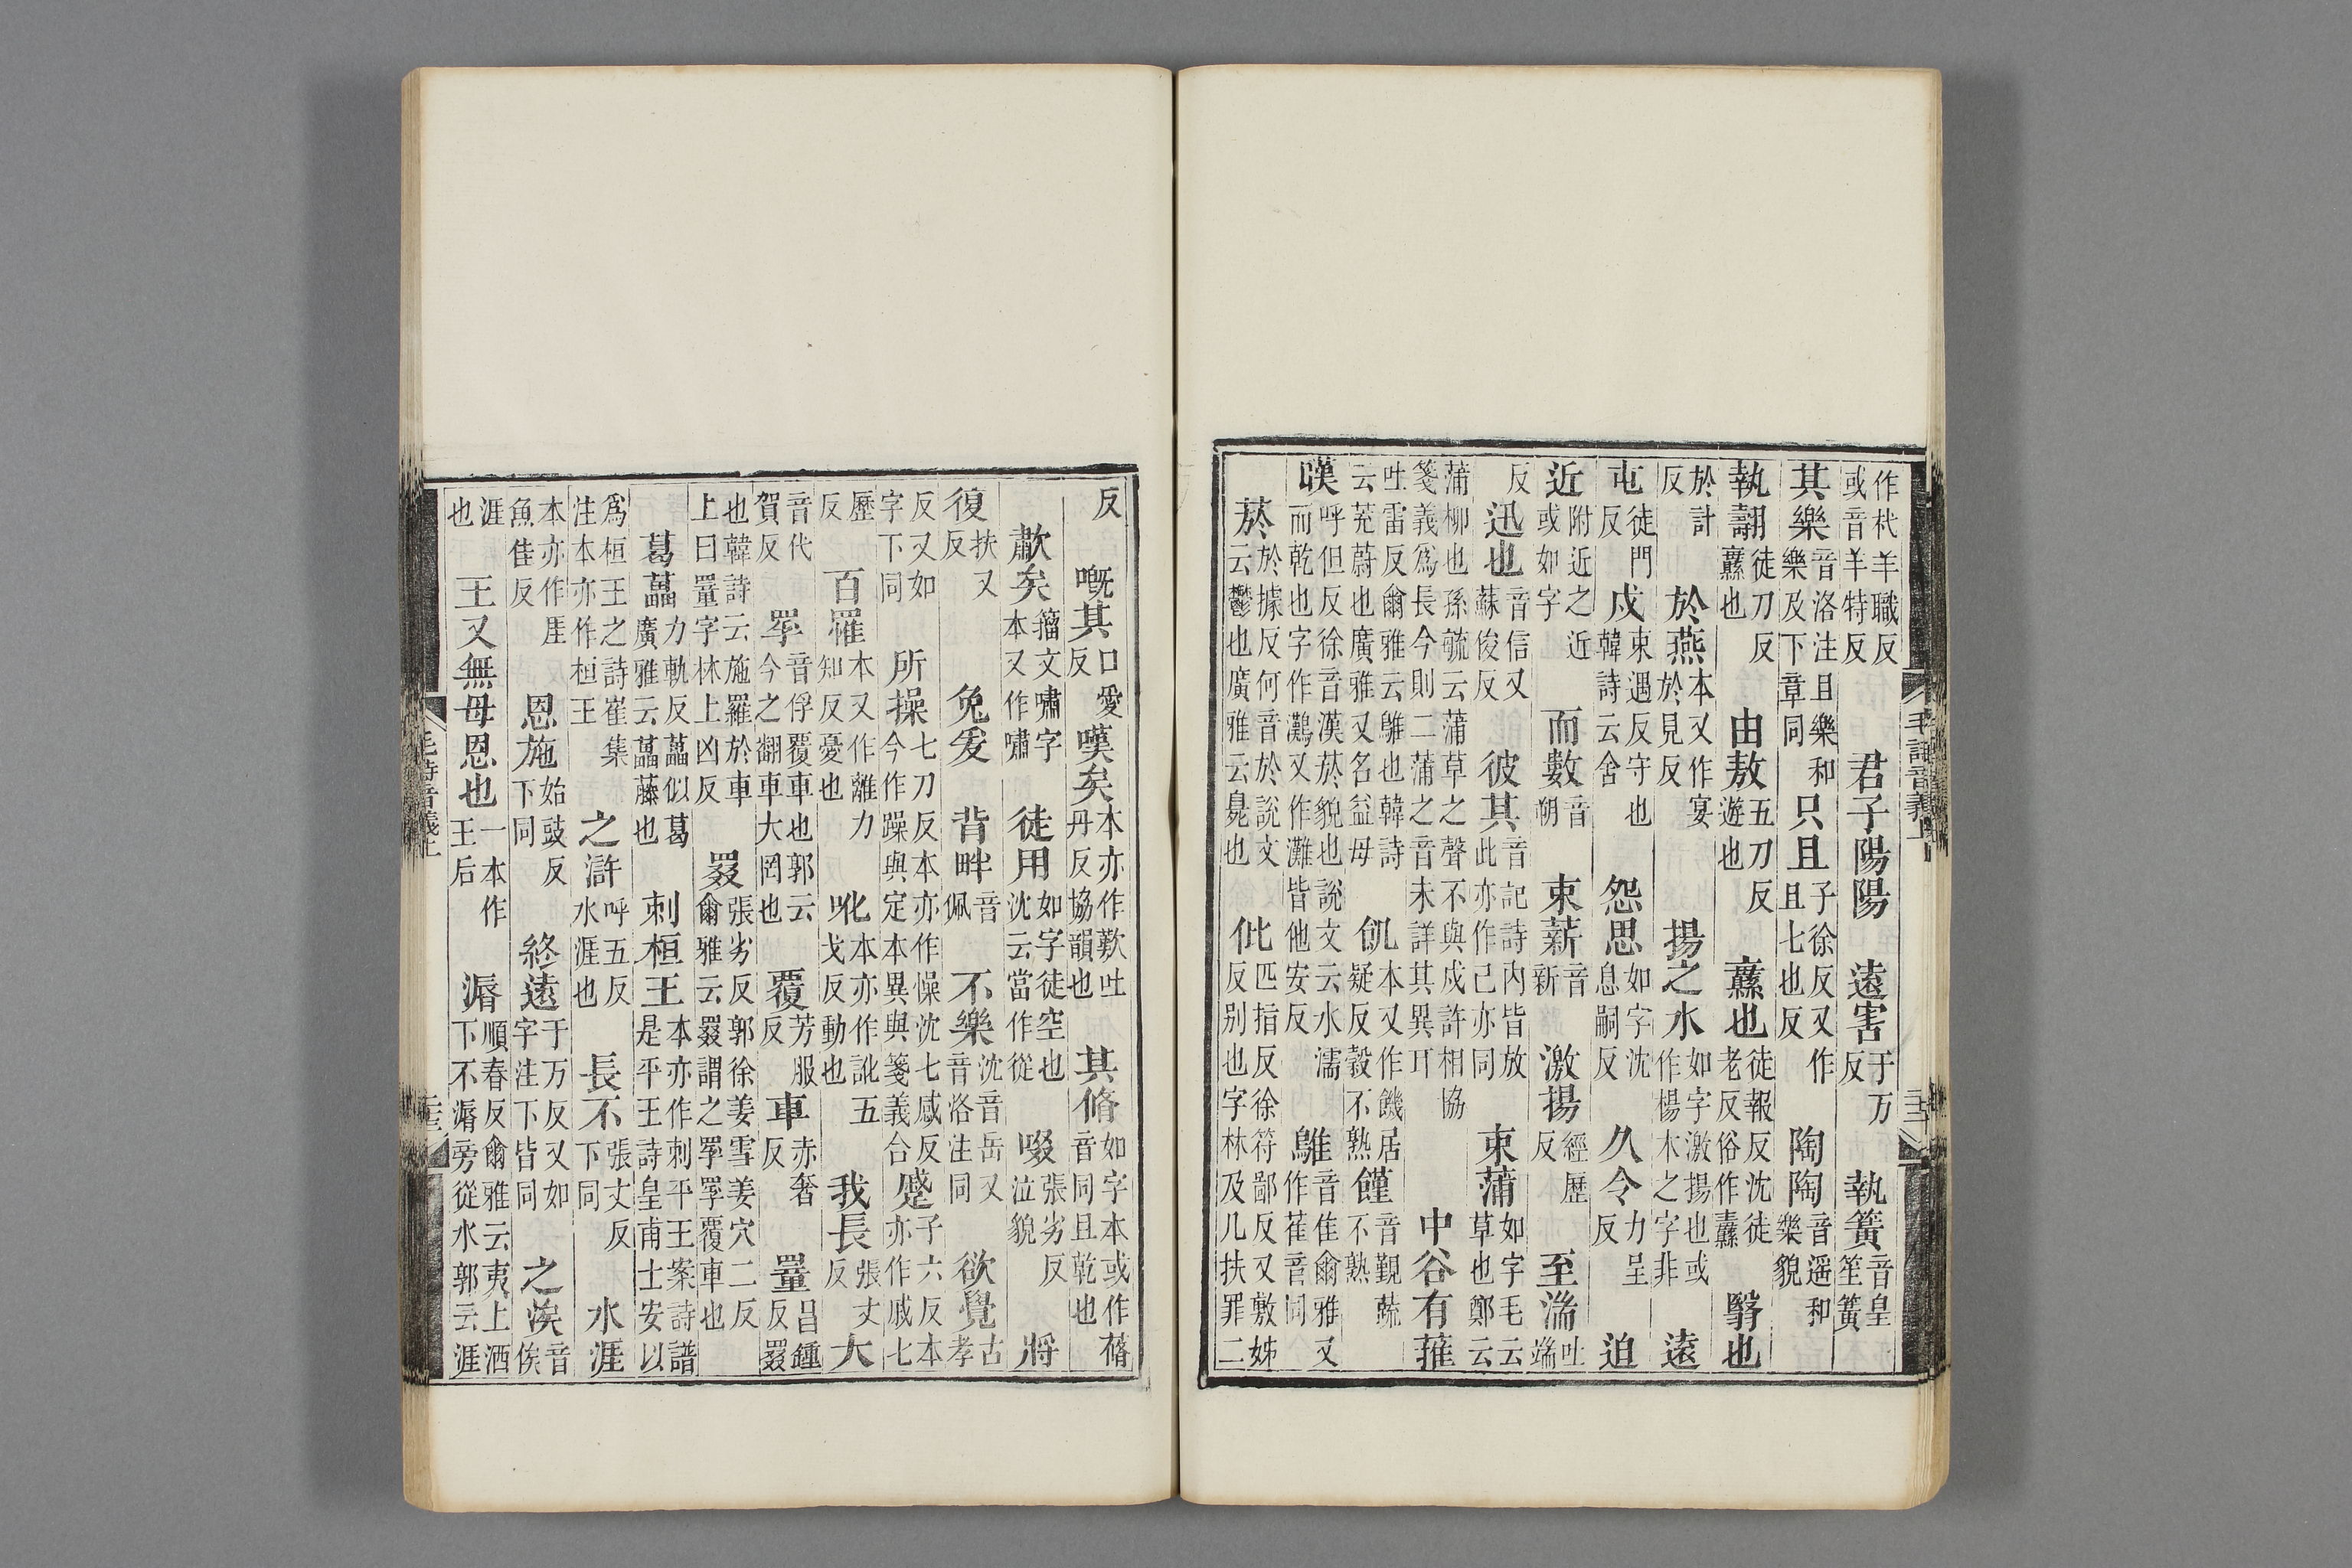 作杙羊職反或音羊特反 君子陽陽 遠害于万反 執簧音皇笙簧
其樂音洛注且樂和樂及下章同 只且子徐反又作且七也反 陶陶音遥和樂貌
執翿徒刀反纛也 由敖五刀反遊也 纛也徒報反沈徒老反俗作纛 翳也
於計反 於燕本又作宴於見反 揚之水如字激揚也或作楊木之字非 遠
屯徒門反 戍束遇反守也韓詩云舍 怨思如字沈息嗣反 久令力呈反 迫
近附近之近或如字 而數音朔 束薪音新 激揚經歷反 至湍吐端
反 迅也音信又蘇俊反 彼其音記詩內皆放此亦作己亦同 束蒲如字毛云草也鄭云
蒲柳也孫毓云蒲草之聲不與戍許相協箋義爲長今則二蒲之音未詳其異耳 中谷有蓷
吐雷反爾雅云鵻也韓詩云茺蔚也廣雅又名益母 飢本又作饑居疑反穀不熟 饉音覲蔬不熟
暵呼但反徐音漢菸貌也說文云水濡而乾也字作灘又作灘皆他安反 鵻音隹爾雅又作萑音同
菸於據反何音於說文云鬱也廣雅云臰也 仳匹指反徐符鄙反又敷姊反别也字林及几扶罪二
毛詩音義上
反 嘅其口愛反 嘆矣本亦作歎吐丹反協韻也 其脩如字本或作蓨音同且乾也
歗矣籀文嘯字本又作嘯 徒用如字徒空也沈云當作從 啜張劣反泣貌 將
復扶又反 兔爰 背畔音佩 不樂沈音岳又音洛注同 欲覺古孝
反又如字下同 所操七刀反本亦作懆沈七感反今作躁與定本異與箋義合 蹙子六反本亦作戚七
歷反 百罹本又作離力知反憂也 吪本亦作訛五戈反動也 我長張丈反 大
音代賀反 罦音俘覆車也郭云今之翻車大罔也 覆芳服反 車赤奢反 罿昌鍾反罬
也韓詩云施羅於車上曰罿字林上凶反 罬張劣反郭徐姜雪姜穴二反爾雅云罬謂之罦罦覆車也
葛藟力軌反藟似葛廣雅云藟藤也 刺桓王本亦作刺平王案詩譜是平王詩皇甫士安以
爲桓王之詩崔集注本亦作桓王 之滸呼五反水涯也 長不張丈反下同 水涯
本亦作厓魚佳反 恩施始豉反下同 終遠于万反又如字注下皆同 之涘音俟
涯也 王又無母恩也一本作王后 漘順春反爾雅云夷上洒下不漘旁從水郭云涯
毛詩音義上